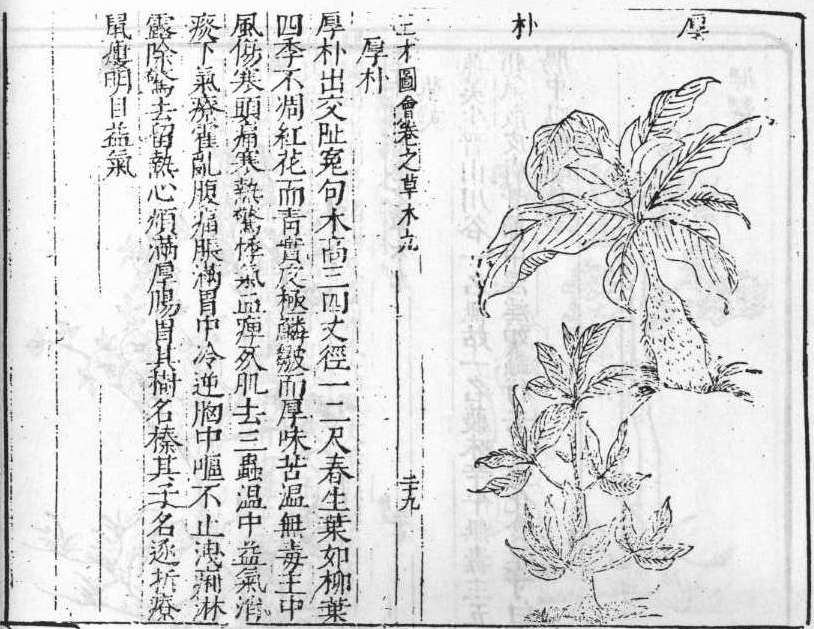 厚朴
三才圖會卷之草木九
二十九
厚朴
厚朴出交趾冤句木高三四丈徑一二尺春生葉如柳葉
四季不凋紅花而青實皮極鱗皴而厚味苦温無毒主中
風傷寒頭痛寒熱驚悸氣血痺死肌去三蟲温中益氣治
痰下氣療霍亂腹痛脹滿胃中冷逆胸中嘔不止洩痢淋
露除驚去留熱心煩滿厚腸胃其樹名榛其子名逐折療
鼠瘻明目益氣